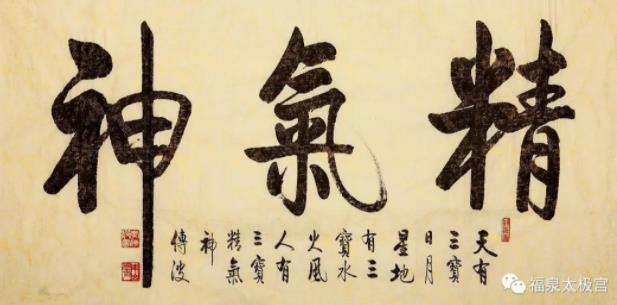 精氣神
天有
三寶
日月
星地
有三
寶水
火風
人有
三寶
精氣
神
福泉太极宫